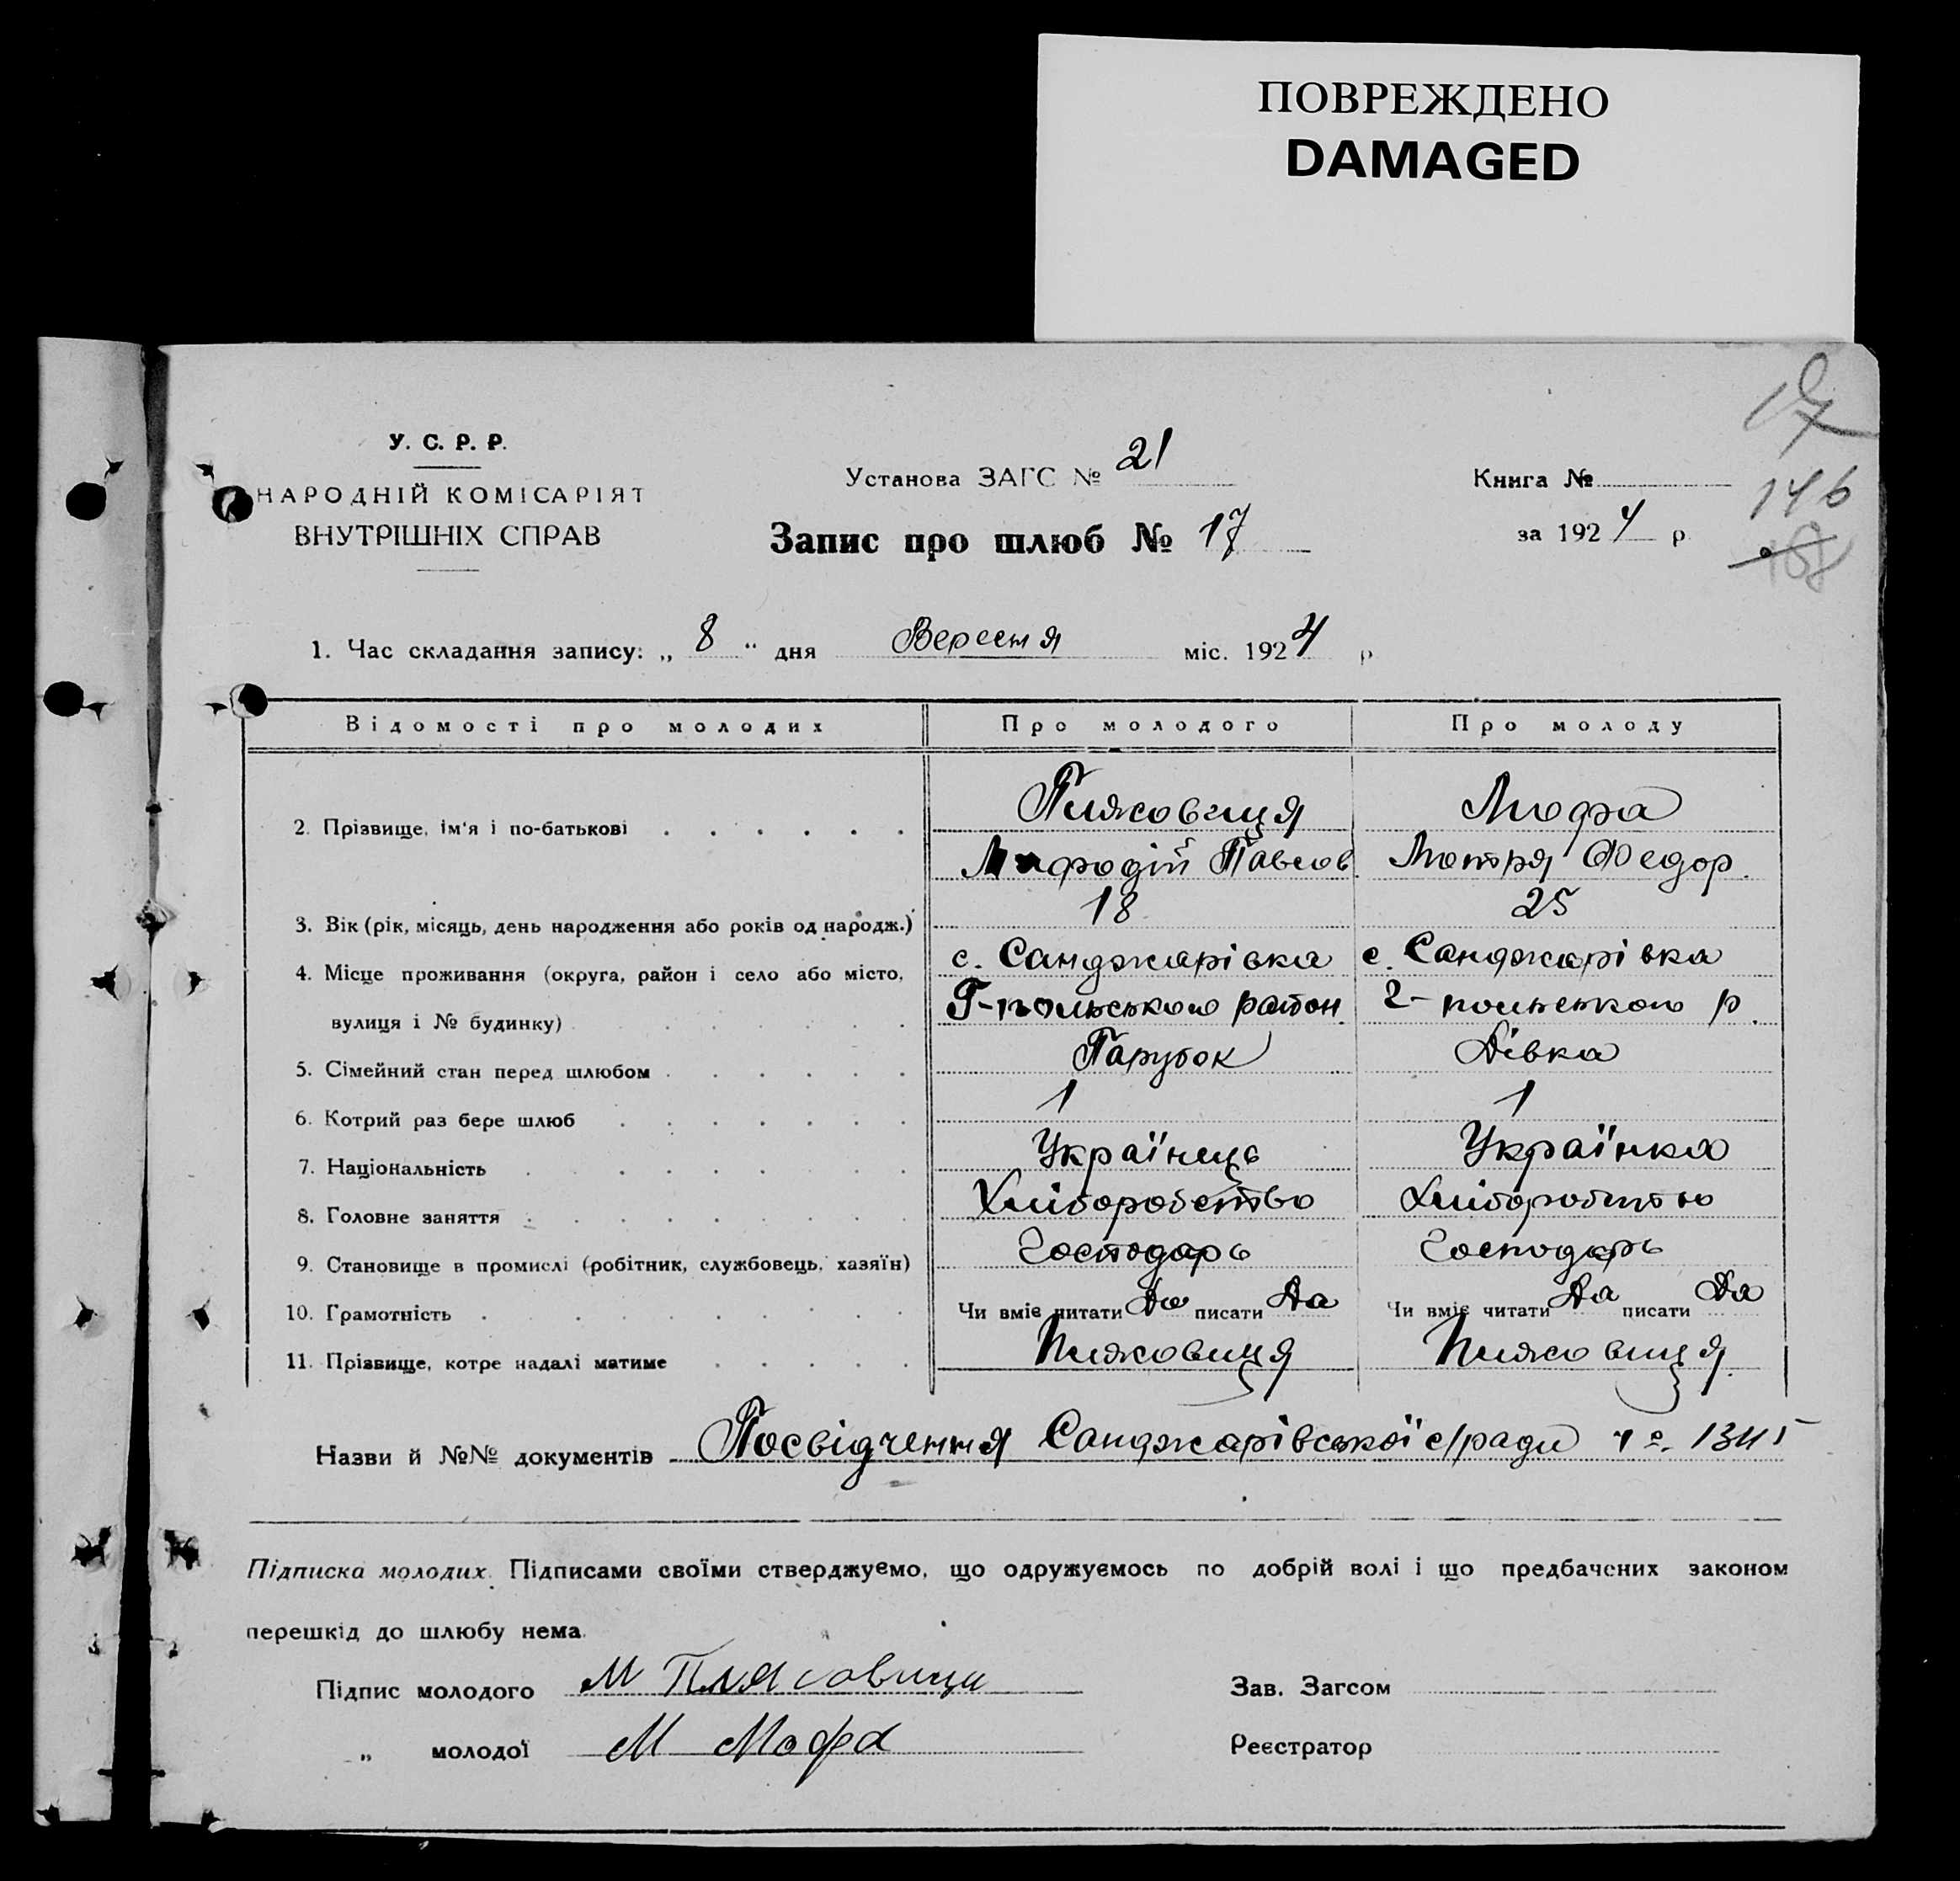 ПОВРЕЖДЕНО
DAMAGED
У. С. Р. Р.
НАРОДНІЙ КОМІСАРІЯТ
ВНУТРІШНІХ СПРАВ
Установа ЗАГС № 21
Запис про шлюб № 17
Книга №
за 1924 р
146
1. Час складання запису: „ 8 “ дня Вересня міс. 1924 р
Відомості про молодих Про молодого Про молоду
2. Прізвище, ім'я і по-батькові Плясовиця Мофа
Мифодій Павлов. Мотря Федор.
3. Вік (рік, місяць, день народження або років од народж.) 18 25
4. Місце проживання (округа, район і село або місто, с. Санджарівка с. Санджарівка
вулиця і № будинку) Г-польського район. Г-польського р.
5. Сімейний стан перед шлюбом Парубок Дівка
6. Котрий раз бере шлюб 1 1
7. Національність Українець Українка
8. Головне заняття Хліборобство Хліборобство
9. Становище в промислі (робітник, службовець, хазяїн) Господарь Господарь
10. Грамотність Чи вміє читати Да писати Да Чи вміє читати Да писати Да
11. Прізвище, котре надалі матиме Плясовиця Плясовиця.
Назви й №№ документів Посвідчення Санджарівської с/ради
Підписка молодих. Підписами своїми стверджуємо, що одружуємось по добрій волі і що предбачених законом
перешкід до шлюбу нема.
Підпис молодого М Плясовиця Зав. Загсом
„ молодої М Мофа Реєстратор